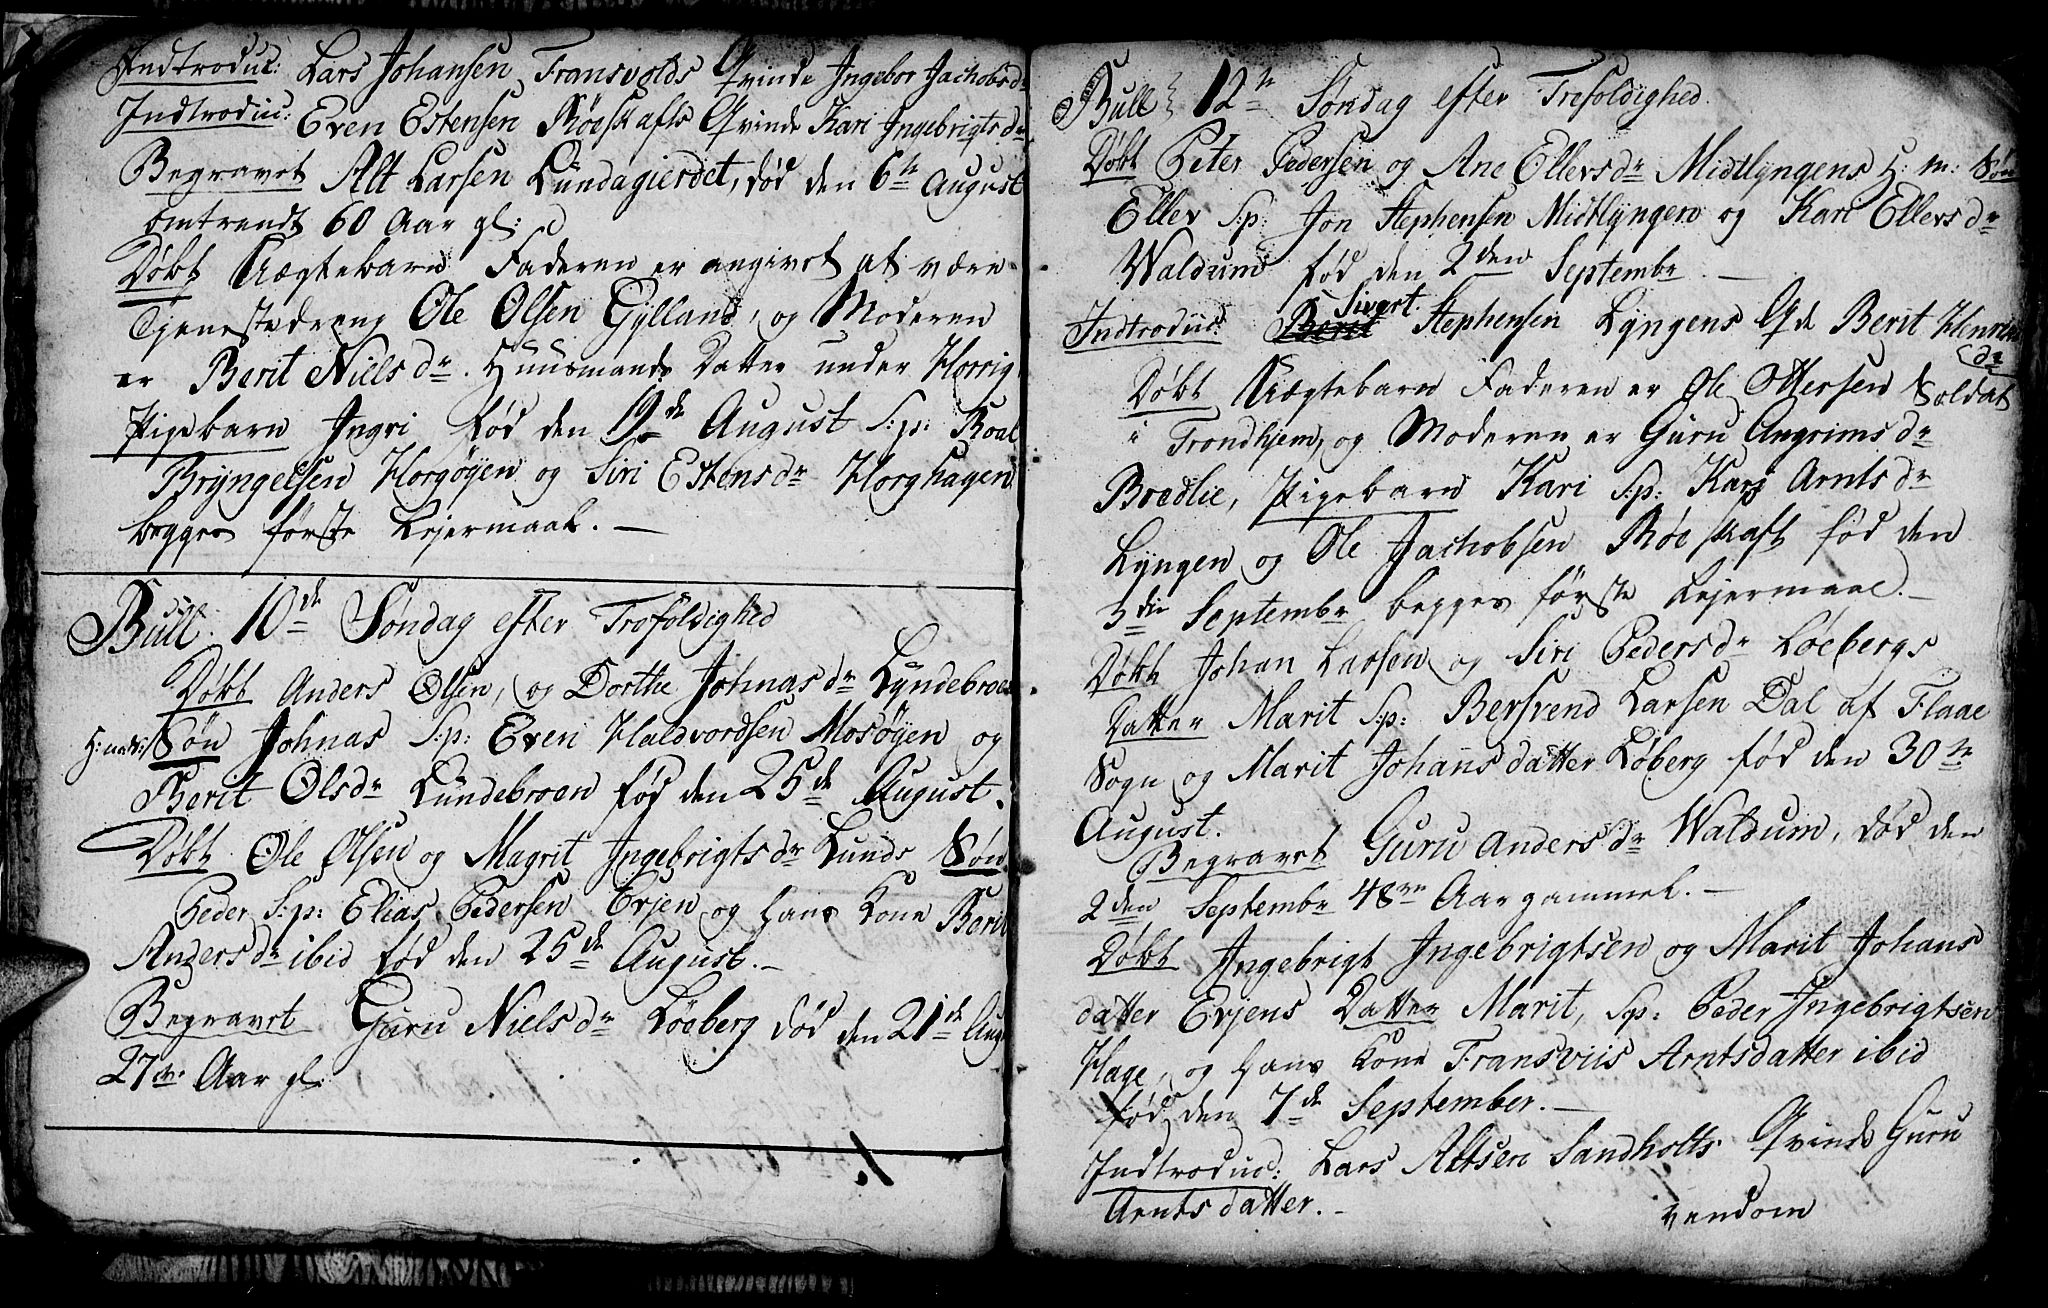 Indtroduc: Lars Johansen Fransvolds Qvinde Ingebor Jachobsdr
Indtroduc: Even Estensen Røeskafts Qvinde Kari Ingebrigtsdr
Begravet Alt Larsen Lundagierdet, død den 6te August
omtrendt 60 Aar gl:
Døbt Uægtebarn Faderen er angivet at være
Tjenestedreng Ole Olsen Gylland, og Moderen
er Berit Nielsdr. Huusmands Datter under Horrig
Pigebarn Ingri fød den 19de August S:p: Roal
Bryngelsen Horgøyen og Siri Estensdr Horghagen
begges første Lejermaal. —
Bull. 10de Søndag efter Trefoldighed
Døbt Anders Olsen, og Dorthe Johnasdr Lyndebroen
H:mds: Søn Johnas S:p: Even Haldvordsen Mosøyen og
Berit Olsdr Lundebroen fød den 25de August.
Døbt Ole Olsen og Magrit Ingebrigtsdr Lunds Søn
Peder S:p: Elias Pedersen Evjen og hans Kone Berit
Andersdr ibid fød den 25de August. —
Begravet Guru Nielsdr Løeberg død den 21de Aug
27 Aar gl:
Bull 12te Søndag efter Trefoldighed.
Døbt Peter Pedersen og Ane Ellevsdr Midtlyngens H: m: Søn
Ellev S:p: Jon Stephensen Midtlyngen og Kari Ellevsdr
Waldum fød den 2den Septembr —
Indtroduc: Berit Sivert Stephensen Lyngens Qde Berit Henrichs
dr
Døbt Uægtebarn Faderen er Ole Ottersen Soldat
i Trondhjem, og Moderen er Guru Angrimsdr
Bredlie, Pigebarn Kari S:p: Kari Arntsdr
Lyngen og Ole Jachobsen Røeskaft fød den
3die Septembr begges første Lejermaal. —
Døbt Johan Larsen og Siri Pedersdr Løebergs
Datter Marit S:p: Bersvend Larsen Dal af Flaae
Sogn og Marit Johansdatter Løberg fød den 30te
August.
Begravet Guru Andersdr Waldum, død den
2den Septembr 48 Aar gammel. —
Døbt Ingebrigt Ingebrigtsen og Marit Johans
datter Evjens Datter Marit, S:p: Peder Ingebrigtsen
Hage, og hans Kone Fransviis Arntsdatter ibid
fød den 7de September. —
Indtroduc: Lars Altsen Sandholts Qvinde Guru
Arntsdatter. —